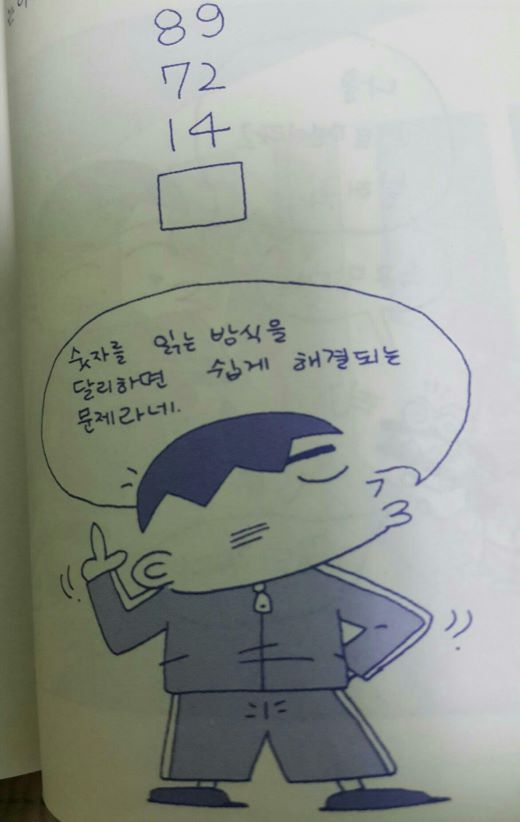 89
72
14
숫자를 읽는 방식을
달리하면 쉽게 해결되는
문제라네.